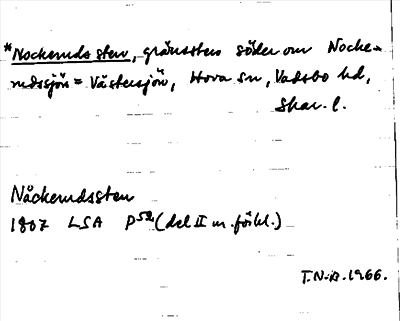 *Nockerudssten, gränssten söder om Nocke-
rudssjön = Västersjön, Hova sn, Vadsbo hd,
Skar. l.
Nåckerudssten
1807 LSA P52 (del II m. förkl.)
T.N-n. 1966.